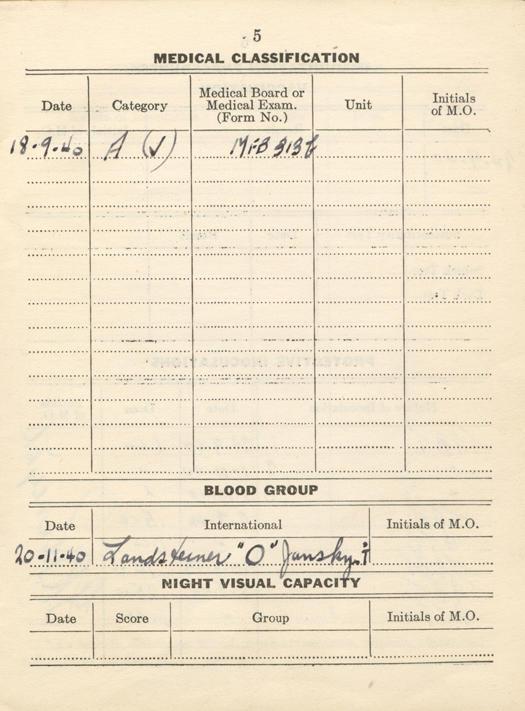 5
MEDICAL CLASSIFICATION
Date Category Medical Board or Medical Exam. (Form No.) Unit Initials of M.O.
18-9-40 A (V)
BLOOD GROUP
Date International Initials of M.O.
20-11-40 Landsteiner "O" Jansky. I
NIGHT VISUAL CAPACITY
Date Score Group Initials of M.O.